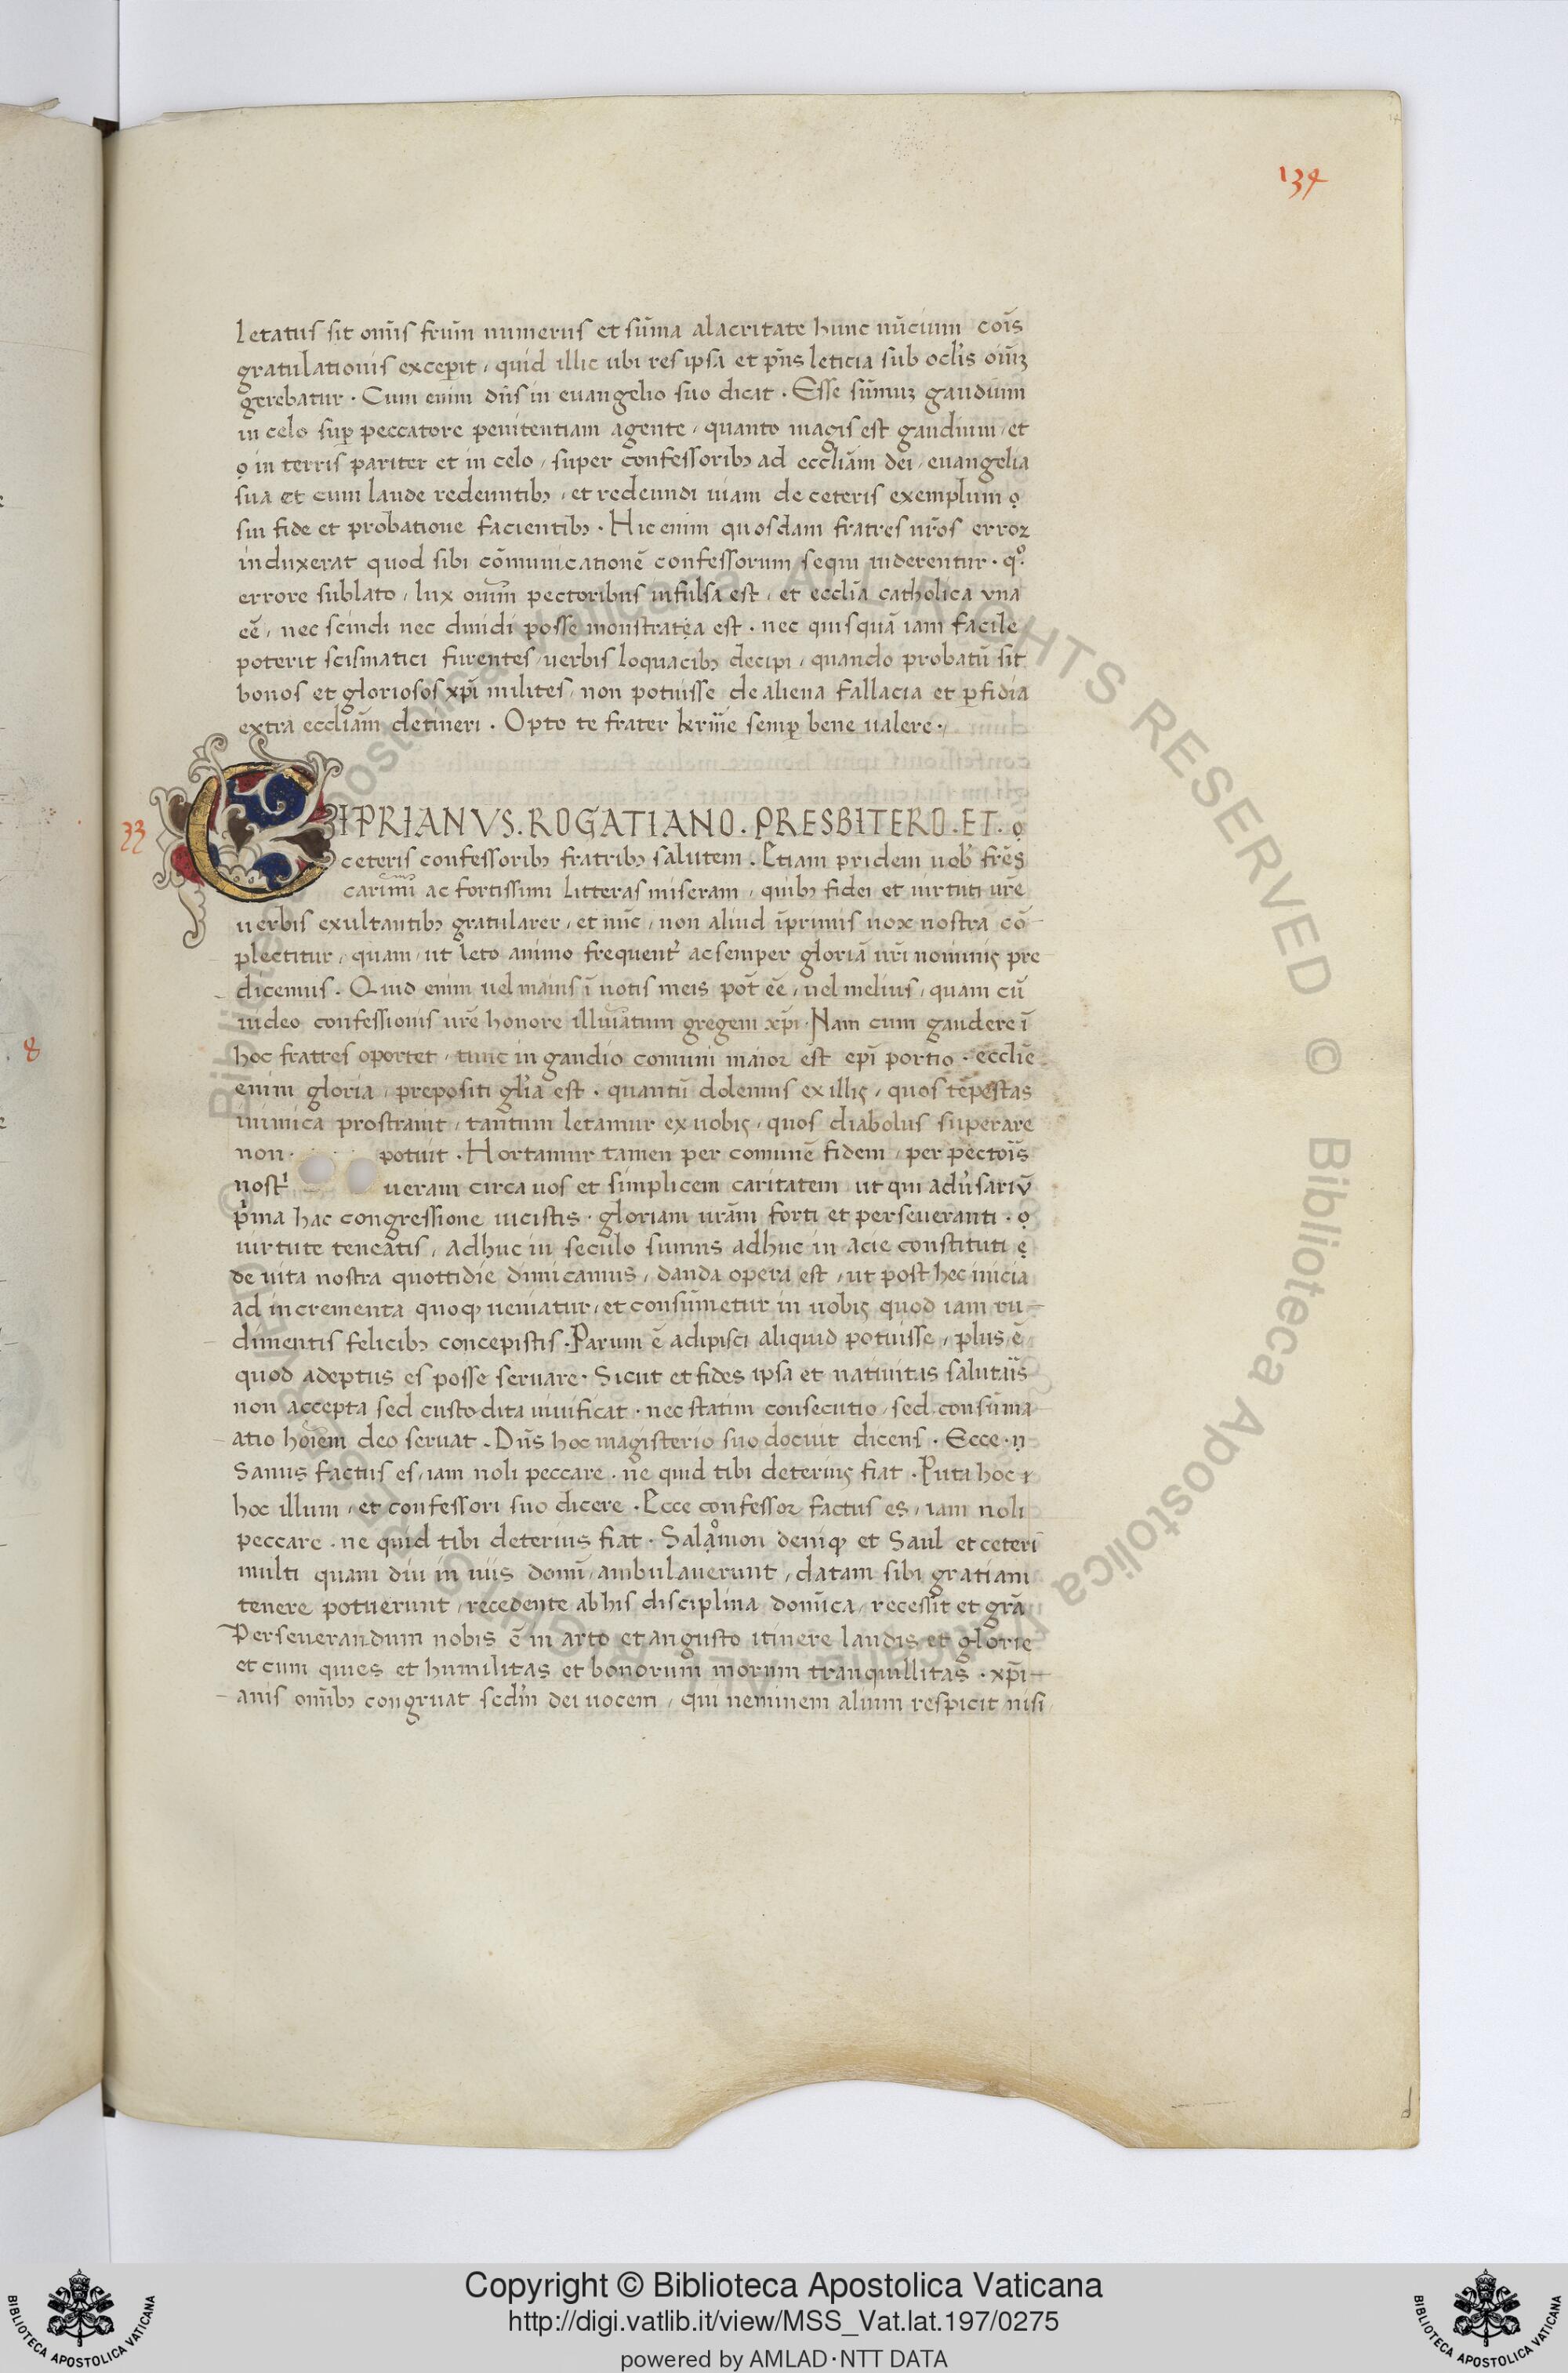 134
letatus sit om̄is frum̄ numerus et sūma alacritate hunc nūcium cois̄
gratulationis excepit, quid illic ubi res ipsa et pn̄s leticia sub ocl'is oiūꝫ
gerebatur. Cum enim dn̄s in euangelio suo dicat. Esse sūmuꝫ gaudium
in celo suꝑ peccatore penitentiam agente, quanto magis est gaudium, et
ọ in terris pariter et in celo, super confessoribꝫ ad eccliām dei, euangelia
sua et cum laude redeuntibꝫ, et redeundi uiam de ceteris exemplum ọ
sui fide et probatione facientibꝫ. Hic enim quosdam fratres nr̄os error
induxerat quod sibi cōmunicationē confessorum sequi uiderentur. qº.
errore sublato, lux oium̄ pectoribus infulsa est, et ecclia̅ catholica vna
eē, nec scindi nec diuidi posse monstratẹa est. nec quisquā iam facile
poterit scismatici furentes uerbis loquacibꝫ decipi, quando probatū sit
bonos et gloriosos xp̄i milites, non potuisse de aliena fallacia et ꝑfidia
extra eccliām detineri. Opto te frater kr̄me semꝑ bene ualere.
33
CIPRIANVS. ROGATIANO. PRESBITERO. ET. ọ
ceteris confessoribꝫ fratribꝫ salutem. Etiam pridem uob' frēs
carim̄i ac fortissimi litteras miseram, quibꝫ fidei et uirtuti ur̄e
uerbis exultantibꝫ gratularer, et nūc, non aliud īprimis uox nostra cō-
plectitur, quam, ut leto animo frequent' ac semper gloriā ur̄i nominis pre
dicemus. Quid enim uel maius ī uotis meis pot̄ eē, uel melius, quam cū
uideo confessionis ur̄e honore illuiātum gregem xp̄i. Nam cum gaudere ī
hoc fratres oportet, tunc in gaudio comuni maior est ep̄i portio. eccliē
enim gloria, prepositi gl'ia est. quantū dolemus ex illis, quos tēpestas
inimica prostrauit, tantum letamur ex uobis, quos diabolus superare
non potuit. Hortamur tamen per comunē fidem, per pectois̄
nost' ueram circa uos et simplicem caritatem ut qui adu'sariū
p'ma hac congressione uicistis. gloriam uram̄ forti et perseueranti. ọ
uirtute teneatis, adhuc in seculo sumus adhuc in acie constituti ẹ
de uita nostra quottidie dimicamus, danda opera est, ut post hec inicia
ad incrementa quoqꝫ ueniatur, et consūmetur in uobis quod iam ru-
dimentis felicibꝫ concepistis. Parum ē adipisci aliquid potuisse, plus ē
quod adeptus es posse seruare. Sicut et fides ipsa et natiuitas salutiīs
non accepta sed custodita uiuificat. nec statim consecutio, sed consūma
atio hoiēm deo seruat. Dn̄s hoc magisterio suo docuit dicens. Ecce. ṇ
Sanus factus es, iam noli peccare. ne quid tibi deterius fiat. Puta hoc ı
hoc illum, et confessori suo dicere. Ecce confessor factus es, iam noli
peccare. ne quid tibi deterius fiat. Salạomon deniqꝫ et Saul et ceteri
multi quam diu in uiis domī, ambulauerunt, datam sibi gratiam
tenere potuerunt, recedente ab his disciplina domīca, recessit et grā
Perseuerandum nobis ē in arto et angusto itinere laudis et glorie
et cum quies et humilitas et bonorum morum tranquillitas. xp̄i-
anis om̄ibꝫ congruat scdm̄ dei uocem, qui neminem alium respicit nisi
8
© Biblioteca Apostolica Vaticana ALL RIGHTS RESERVED
Copyright © Biblioteca Apostolica Vaticana
http://digi.vatlib.it/view/MSS_Vat.lat.197/0275
powered by AMLAD·NTT DATA
BIBLIOTECA APOSTOLICA VATICANA
BIBLIOTECA APOSTOLICA VATICANA